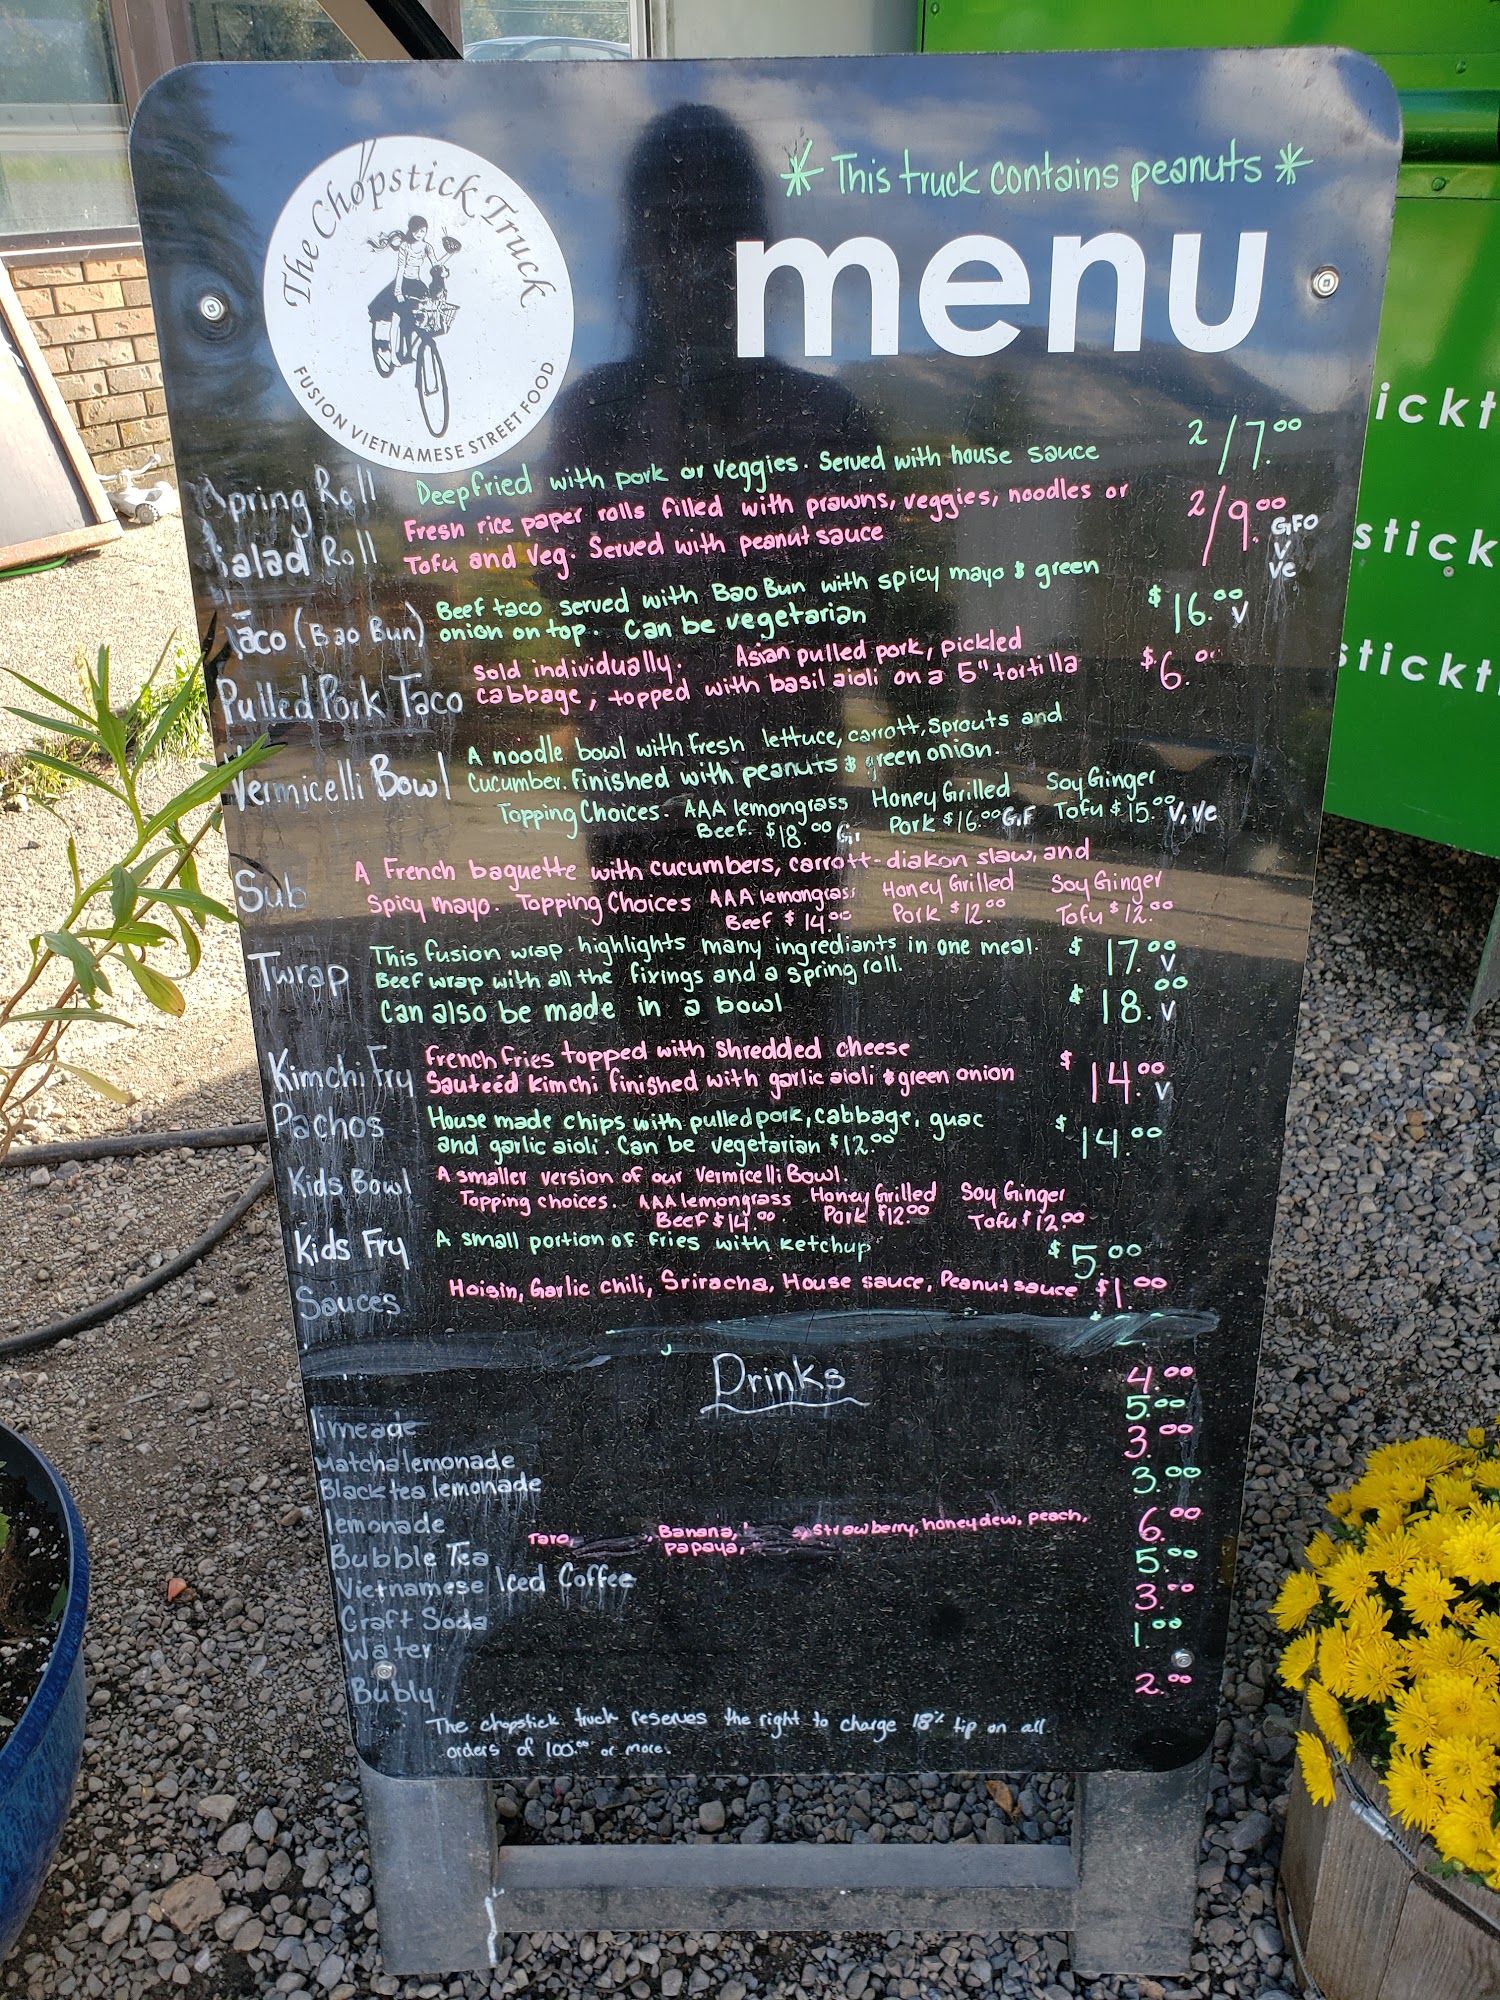 The Chopstick Truck
FUSION VIETNAMESE STREET FOOD
* This truck contains peanuts *
menu
Spring Roll Deepfried with pork or veggies. Served with house sauce 2/7.00
Salad Roll Fresh rice paper rolls filled with prawns, veggies, noodles or 2/9.00 GFO
Tofu and Veg. Served with peanut sauce V
Ve
Taco (Bao Bun) Beef taco served with Bao Bun with spicy mayo & green $16.00 V
onion on top. Can be vegetarian
Pulled Pork Taco Sold individually. Asian pulled pork, pickled $6.
cabbage, topped with basil aioli on a 5" tortilla
Vermicelli Bowl A noodle bowl with fresh lettuce, carrott, sprouts and
cucumber. finished with peanuts & green onion.
Topping Choices. AAA lemongrass Honey Grilled Soy Ginger
Beef. $18.00 Pork $16.00 GF Tofu $15.00 V, Ve
Sub A French baguette with cucumbers, carrott-diakon slaw, and
Spicy mayo. Topping Choices AAA lemongrass Honey Grilled Soy Ginger
Beef $14.00 Pork $12.00 Tofu $12.00
Twrap This fusion wrap highlights many ingrediants in one meal. $17.00 V
Beef wrap with all the fixings and a spring roll.
Can also be made in a bowl $18.00 V
Kimchi Fry French Fries topped with shredded cheese $14.00 V
Sauteéd kimchi finished with garlic aioli & green onion
Pachos House made chips with pulled pork, cabbage, guac $14.00
and garlic aioli. Can be vegetarian $12.00
Kids Bowl A smaller version of our Vermicelli Bowl.
Topping choices. AAA lemongrass Honey Grilled Soy Ginger
Beef $14.00 Pork $12.00 Tofu $12.00
Kids Fry A small portion of fries with ketchup $5.00
Sauces Hoisin, Garlic chili, Sriracha, House sauce, Peanut sauce $1.00
Drinks
limeade 4.00
Matcha lemonade 5.00
Black tea lemonade 3.00
lemonade 3.00
Bubble Tea Taro, Banana, Strawberry, honeydew, peach, 6.00
papaya,
Vietnamese Iced Coffee 5.00
Craft Soda 3.00
Water 1.00
Bubly 2.00
The chopstick truck reserves the right to charge 18% tip on all
orders of 100.00 or more.
ickt
stick
stickt